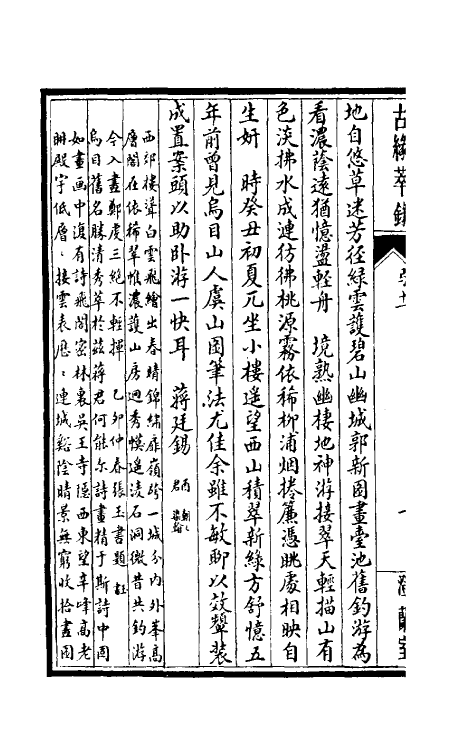 古緣萃錄
卷十
一
澄蘭室
地自悠草迷芳徑綠雲護碧山幽城郭新圖畫臺池舊釣游為
看濃蔭遠猶憶盪輕舟 境熟幽棲地神游接翠天輕描山有
色淡拂水成連彷彿桃源霧依稀柳浦烟捲簾憑眺處相映自
生妍 時癸丑初夏兀坐小樓遙望西山積翠新綠方舒憶五
年前曾見烏目山人虞山圖筆法尤佳余雖不敏聊以效顰裝
成置案頭以助臥游一快耳 蔣廷錫
西郊樓聳白雲飛繪出春晴錦繡扉嶺跨一城分內外峯高
層閣在依稀翠惟濃護山房迥秀幙遥淩石洞微昔共釣游
今入畫鄭虔三絕不輕揮 己卯仲春張玉書題
烏目舊名勝清秀萃於茲蔣君何能尔詩畫精于斯詩中固
如畫画中復有詩飛閣密林裏吳王寺隱西東望辛峰高老
畊殿字低層接雲表歷連城谿陰晴景無窮收拾畫圖